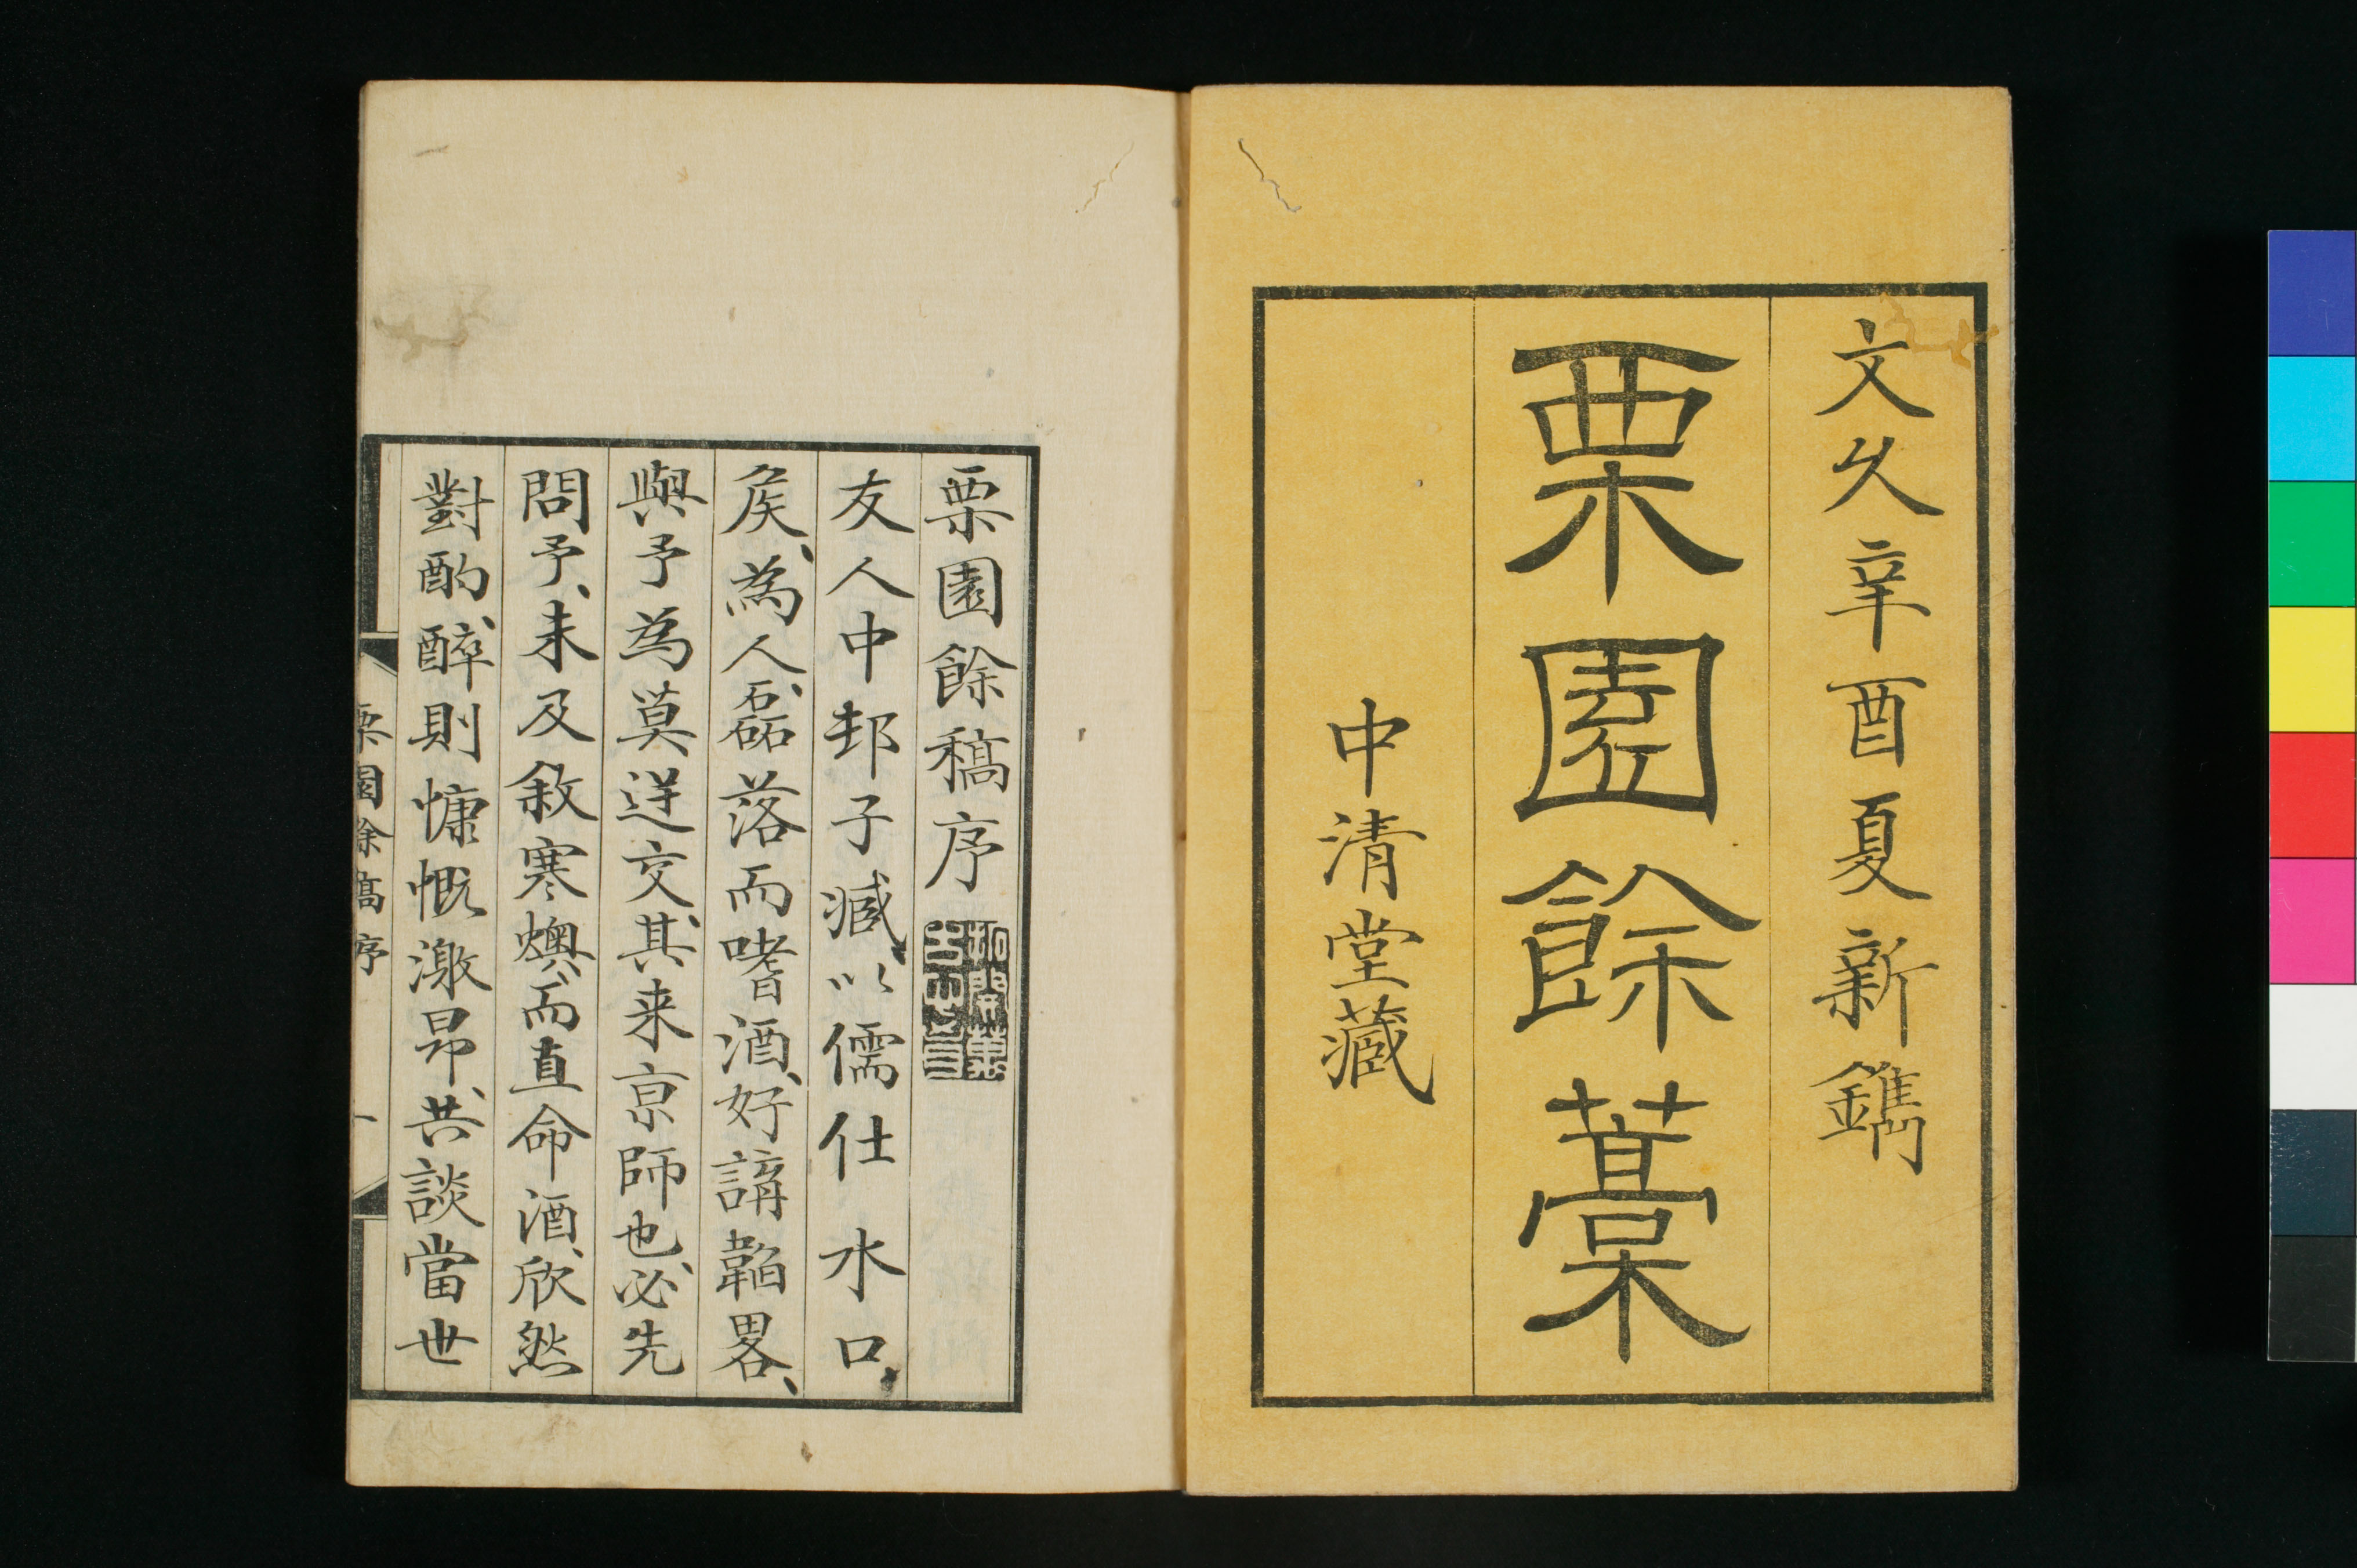 文久辛酉夏新鐫
栗園餘藁
中清堂藏
栗園餘稿序
友人中邨子臧以儒仕水口
矦、為人、磊落而嗜酒、好講韜畧、
與予為莫逆交、其来京師也、必先
問予、未及敘寒燠、而直命酒、欣然
對酌、醉則慷慨激昂、共談當世
栗園餘稿序 一